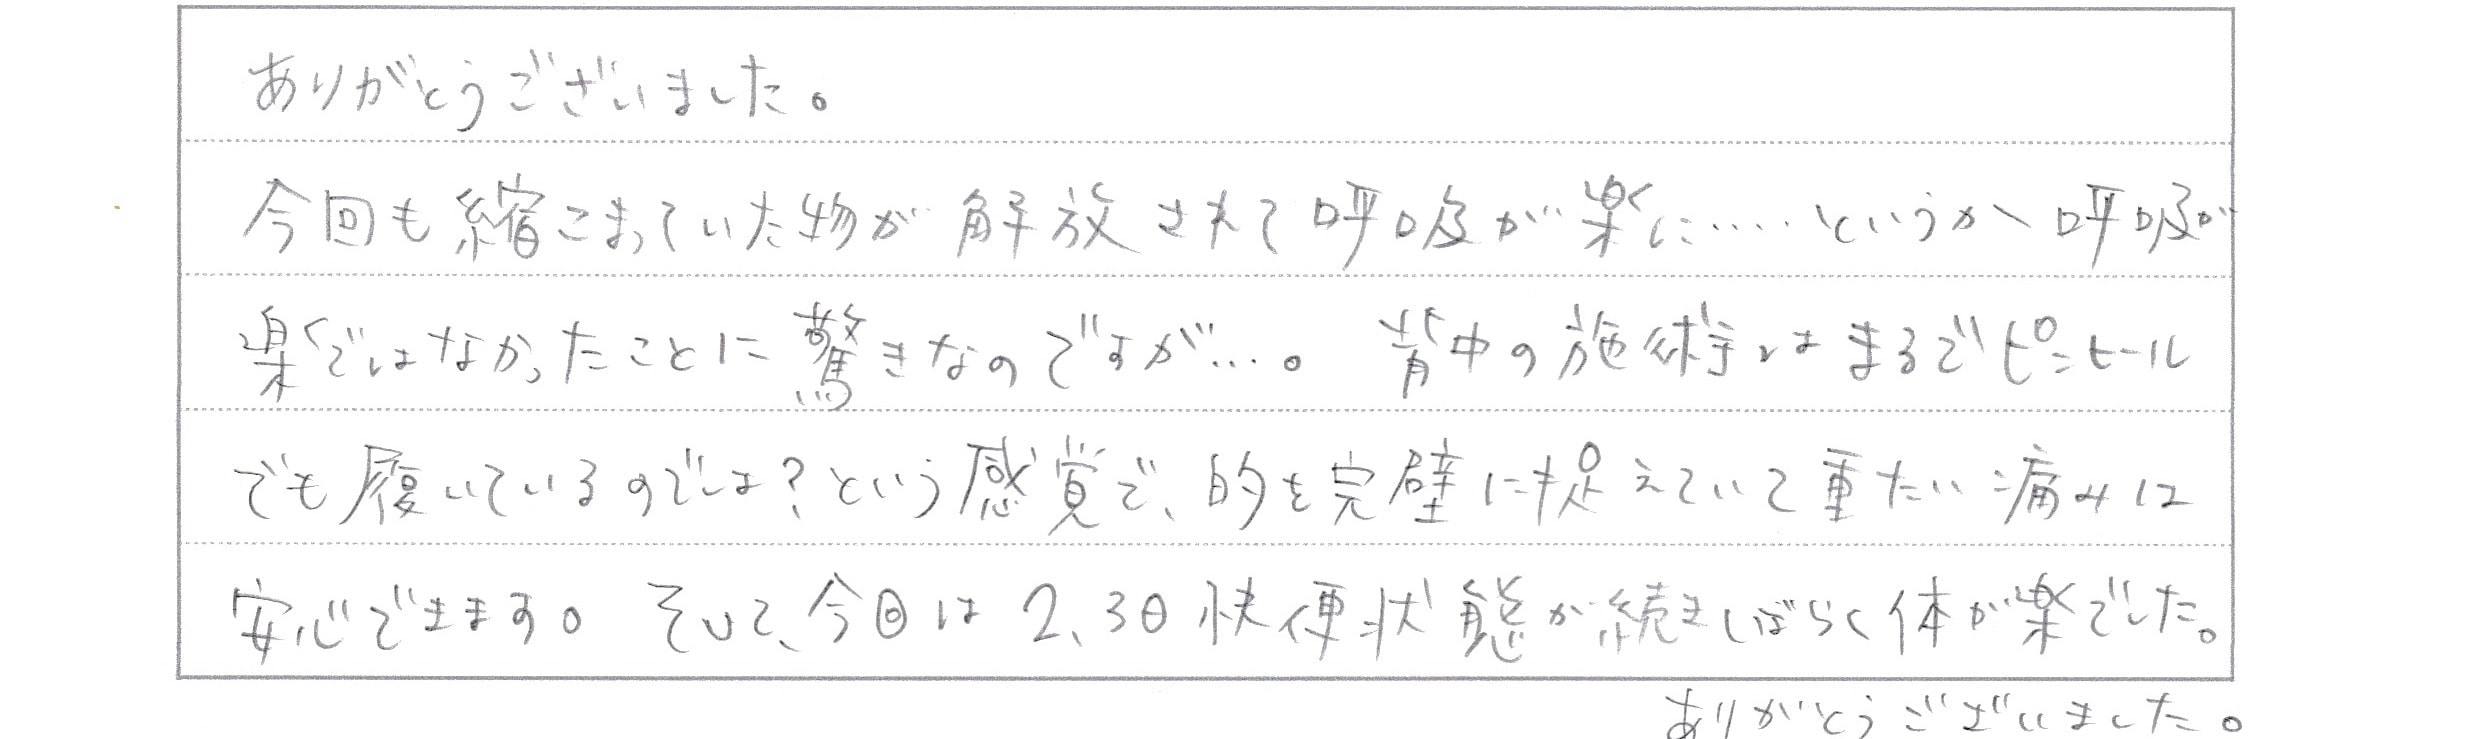 ありがとうございました。
今回も縮こまっていた物が解放されて呼吸が楽に‥‥‥というか、呼吸が
楽ではなかったことに驚きなのですが…。 背中の施術はまるでピンヒール
でも履いているのでは？という感覚で、的を完璧に捉えていて重たい痛みに
安心できます。 そして、今回は2、3日快便状態が続きしばらく体が楽でした。
ありがとうございました。